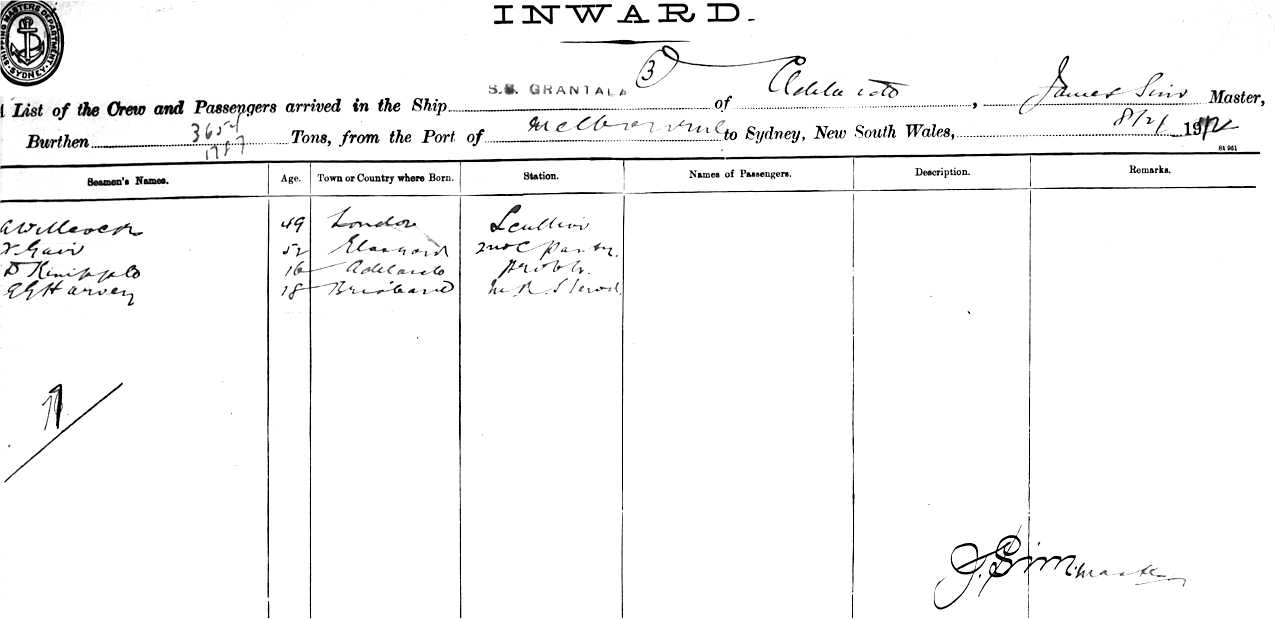 SHIPPING MASTERS DEPARTMENT SYDNEY
INWARD.
3
A List of the Crew and Passengers arrived in the Ship S.S. GRANTALA of Adelaide, James Sim Master,
Burthen 3654 1787 Tons, from the Port of Melbourne to Sydney, New South Wales, 8/2/ 1912
84 961
Seamen's Names. Age. Town or Country where Born. Station. Names of Passengers. Description. Remarks.
49 London Scullion
Gair 52 Glasgow 2nd Pantry.
D 16 Adelaide
Harvey 18 Brisbane
J. Sim. Master